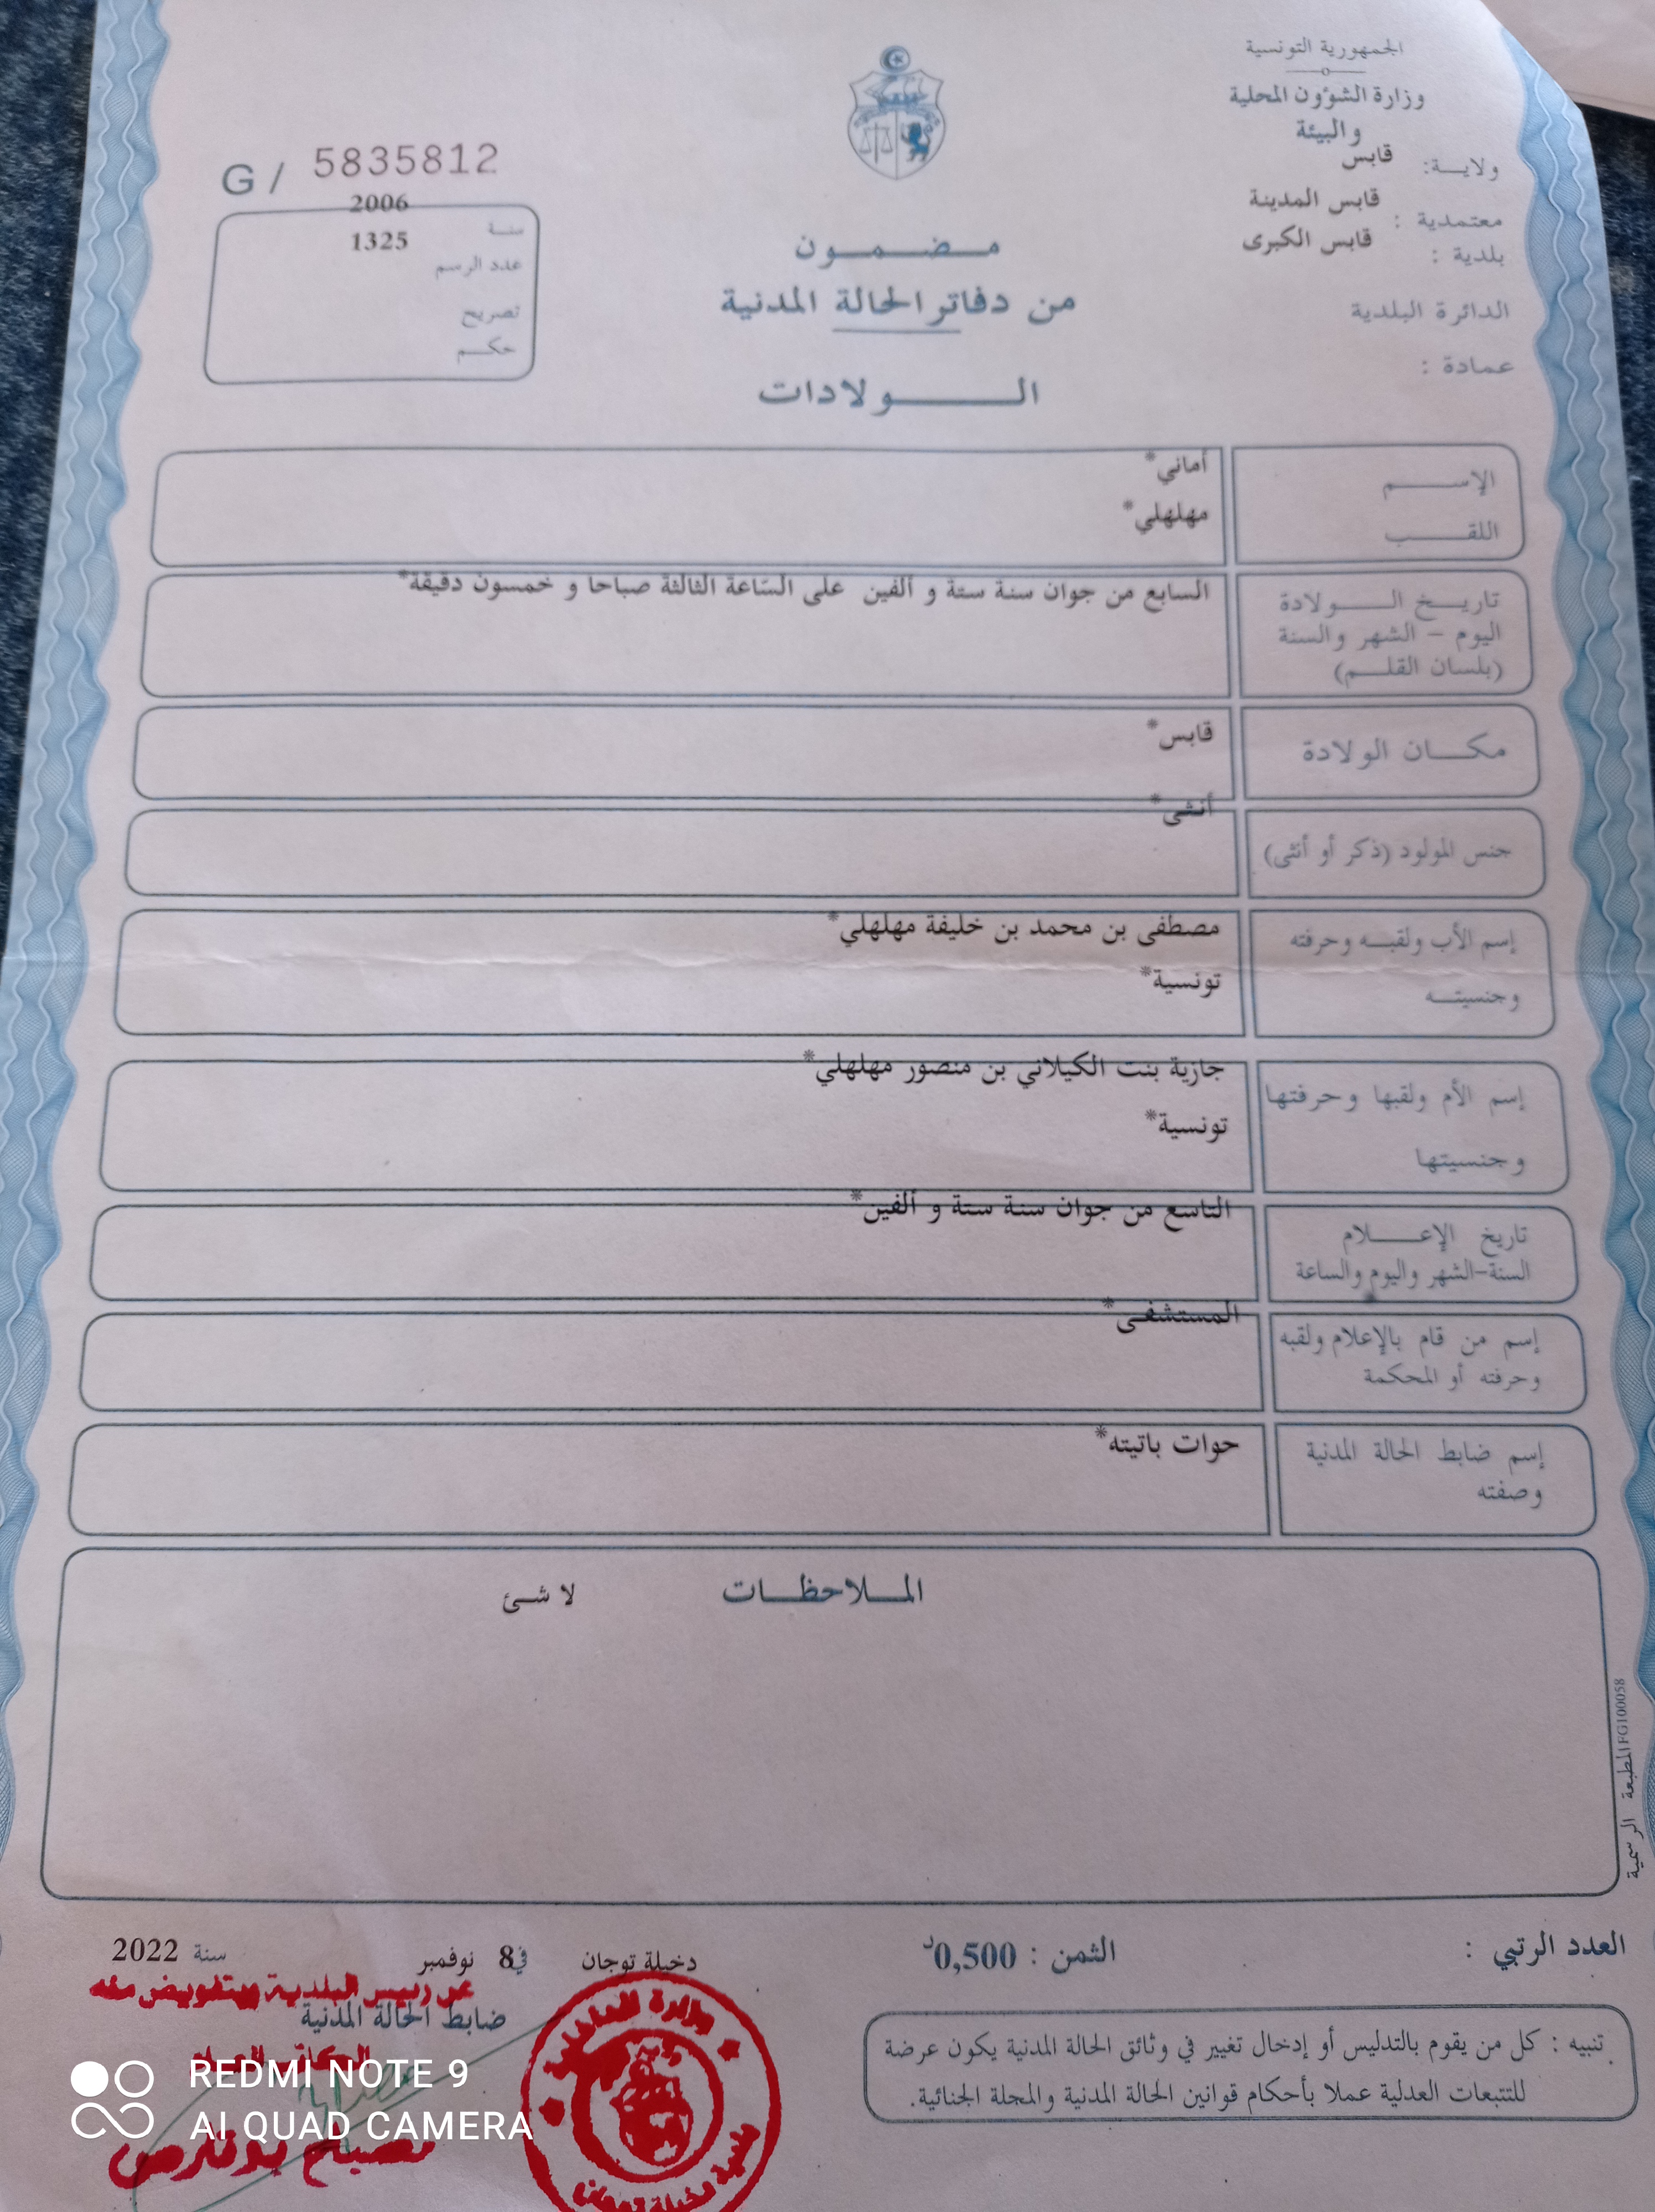 الجمهورية التونسية
وزارة الشؤون المحلية
والبيئة
ولاية: قابس
معتمدية : قابس المدينة
بلدية : قابس الكبرى
الدائرة البلدية
عمادة :
G / 5835812
سنة 2006
عدد الرسم 1325
تصريح
حكم
مضمون
من دفاتر الحالة المدنية
الولادات
الإسم أماني*
اللقب مهلهلي*
تاريخ الولادة السابع من جوان سنة ستة و ألفين على الساعة الثالثة صباحا و خمسون دقيقة*
اليوم - الشهر والسنة
(بلسان القلم)
مكان الولادة قابس*
جنس المولود (ذكر أو أنثى) أنثى*
إسم الأب ولقبه وحرفته مصطفى بن محمد بن خليفة مهلهلي*
وجنسيته تونسية*
إسم الأم ولقبها وحرفتها جازية بنت الكيلاني بن منصور مهلهلي*
وجنسيتها تونسية*
تاريخ الإعلام التاسع من جوان سنة ستة و ألفين*
السنة-الشهر واليوم والساعة
إسم من قام بالإعلام ولقبه المستشفى*
وحرفته أو المحكمة
إسم ضابط الحالة المدنية حوات باتيته*
وصفته
الملاحظات لا شئ
المطبعة الرسمية FG100058
العدد الرتبي : الثمن : 0,500د
دخيلة توجان في 8 نوفمبر سنة 2022
عن رئيس البلدية وبتفويض منه
ضابط الحالة المدنية
الكاتب العام
تنبيه : كل من يقوم بالتدليس أو إدخال تغيير في وثائق الحالة المدنية يكون عرضة
للتتبعات العدلية عملا بأحكام قوانين الحالة المدنية والمجلة الجنائية.
وزارة الداخلية
بلدية دخيلة توجان
REDMI NOTE 9
AI QUAD CAMERA